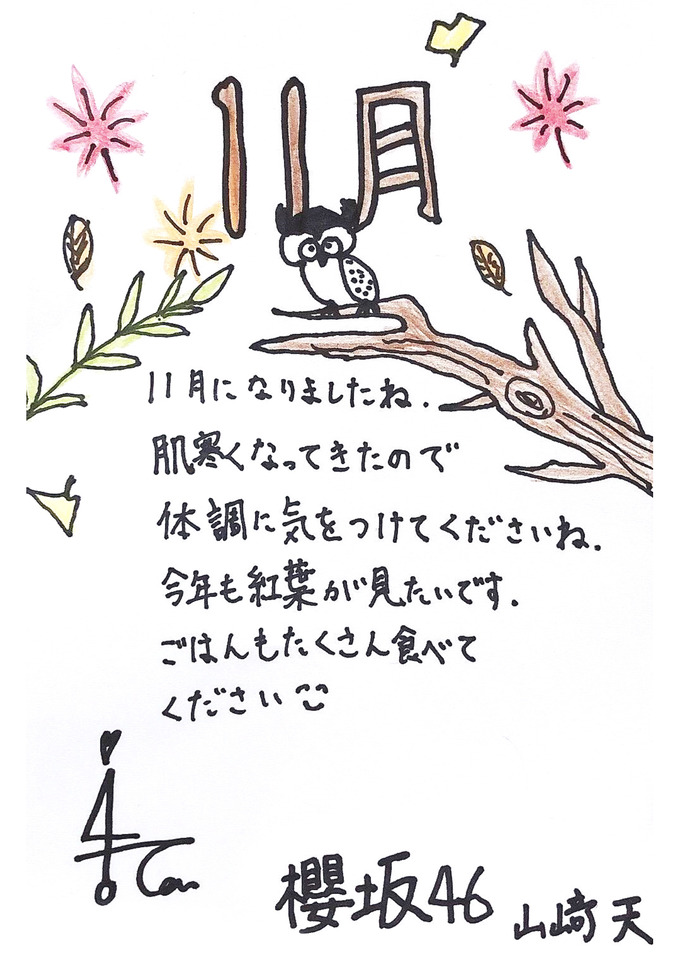 11月
11月になりましたね.
肌寒くなってきたので
体調に気をつけてくださいね.
今年も紅葉が見たいです.
ごはんもたくさん食べて
ください
櫻坂46 山﨑 天